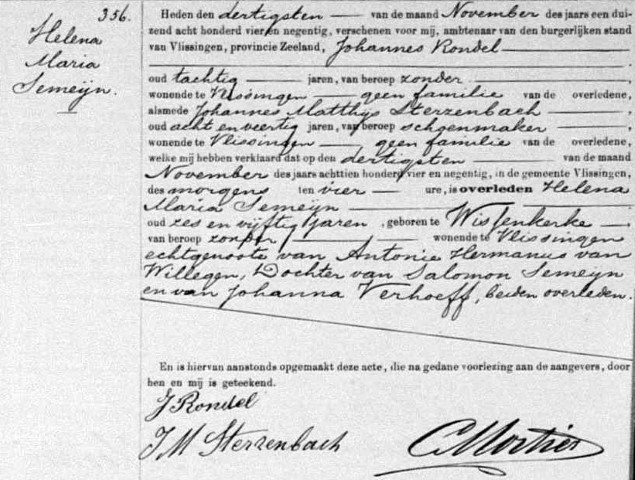 356.
Helena
Maria
Semeijn.
Heden den dertigsten van de maand November des jaars een dui-
zend acht honderd vier en negentig, verschenen voor mij, ambtenaar van den burgerlijken stand
van Vlissingen, provincie Zeeland, Johannes Rondel
oud tachtig jaren, van beroep zonder
wonende te Vlissingen geen familie van de overledene,
alsmede Johannes Matthijs Sterzenbach,
oud acht en veertig jaren, van beroep schoenmaker,
wonende te Vlissingen, geen familie van de overledene,
welke mij hebben verklaard dat op den dertigsten van de maand
November des jaars achttien honderd vier en negentig, in de gemeente Vlissingen,
des morgens ten vier ure, is overleden Helena
Maria Semeijn
oud zes en vijftig jaren, geboren te Wissenkerke
van beroep zonder, wonende te Vlissingen
echtgenoote van Antonie Hermanus van
Willegen, Dochter van Salomon Semeijn
en van Johanna Verhoeff, beiden overleden.
En is hiervan aanstonds opgemaakt deze acte, die na gedane voorlezing aan de aangevers, door
hen en mij is geteekend.
J Rondel
J M Sterzenbach
C Mortier